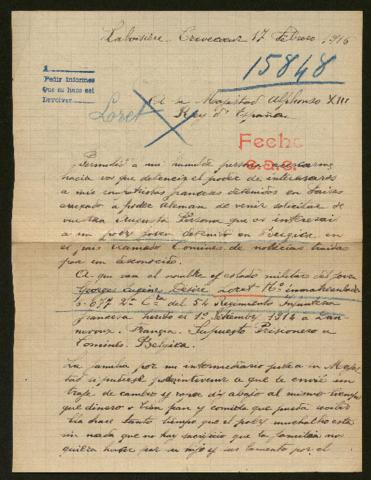 17 Febrero 1916
A
Pedir informes
Que se hace así
Devolver
15848
Loret
A su Majestad Alphonso XIII
Rey d'España
Fecha
e.a.e.
Permitid a mi humilde persona
hacia vos que detencis el poder de interesaros
a mis compatriotas franceses detenidos en
a poder aleman de venir solicitar de
vuestra Augusta Persona que os interesais
a un pobre joven detenido en Belgica en
el país llamado Comines de noticias traidas
por un desconocido.
A qui van el nombre y estado militar del joven
Georges Eugène Désiré Loret 16°
5.677 2a Cia del 54 Regimiento Infanteria
francesa herido el 1° Setembre 1914 a
Francia. Supuesto Prisonero a
Comines Belgica.
La familia por mi intermediario pide a su Majes-
tad si pudiese a que le envie un
traje de cambio y ropa di abajo al mismo tiempo
que dinero o bien pan y comida que pueda recibir
hace tanto tiempo que el pobre muchacho esta
sin nada que no hay sacrificio que la familia no
quiera hacer por su mijo y un lamento por el